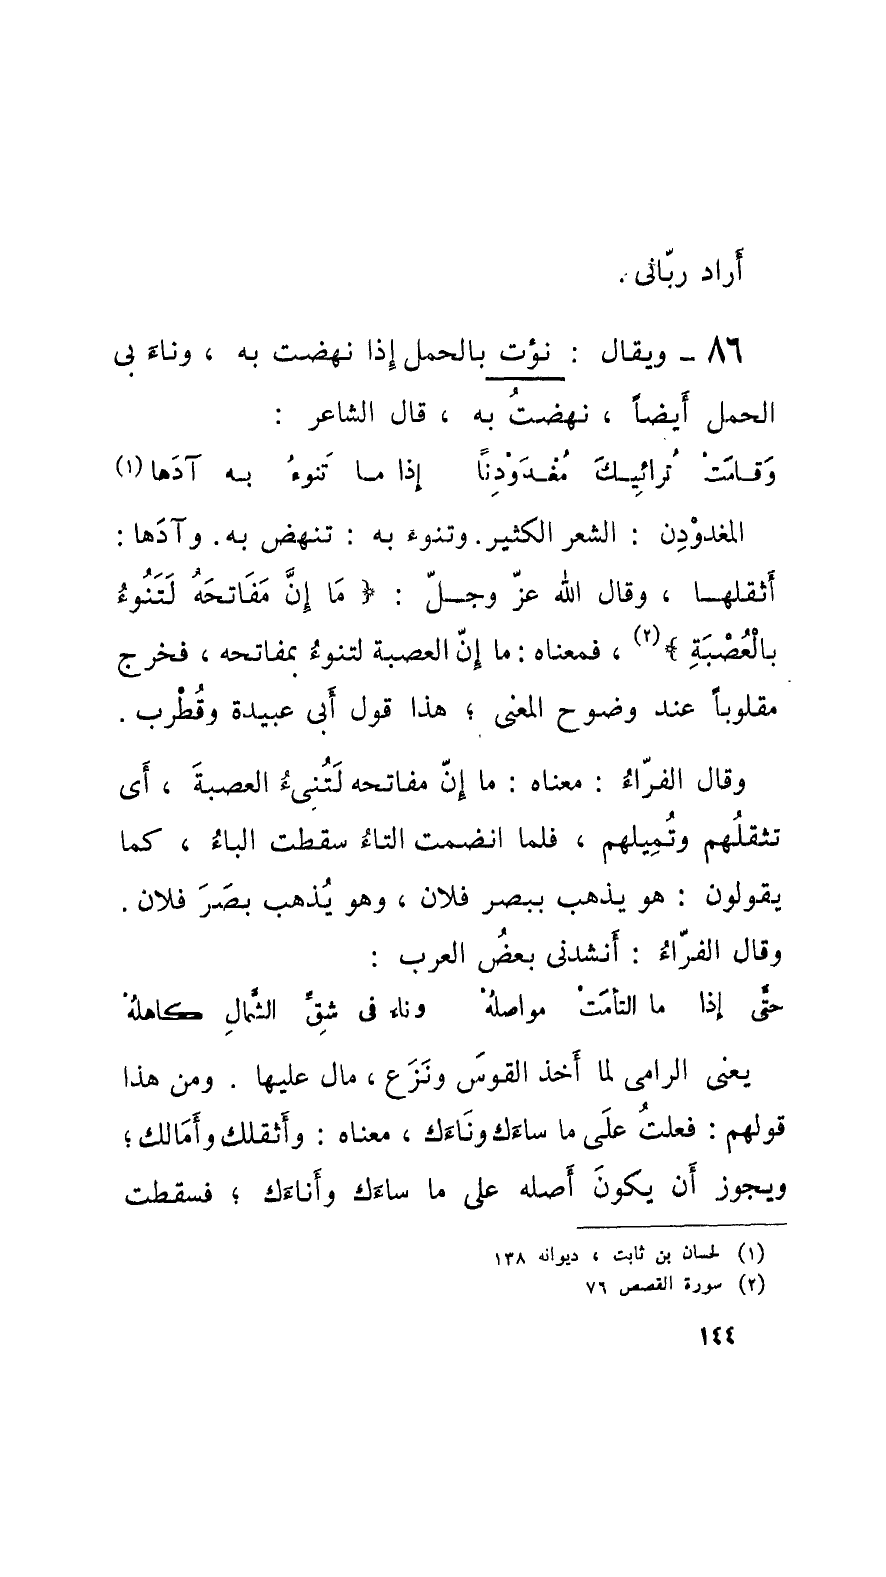 أَراد ربّانى .
٨٦ – ويقال : نؤت بالحمل إذا نهضت به ، وناءَ بى
الحمل أَيضاً ، نهضتُ به ، قال الشاعر :
وَقـامَتْ تُرائيـكَ مُغْـدَوْدِنًا إذا مـا تَنوءُ بـه آدَها (١)
المغدوْدِن : الشعر الكثير . وتنوءُ به : تنهض به . وآدَها :
أَثقلهـا ، وقال الله عزّ وجـلّ : ﴿ مَا إِنَّ مَفَاتحَهُ لَتَنُوءُ
بالْعُصْبَةِ ﴾(٢) ، فمعناه : ما إنّ العصبة لتنوءُ بمفاتحه ، فخرج
مقلوباً عند وضوح المعنى ؛ هذا قول أَبى عبيدة وقُطْرب .
وقال الفرّاءُ : معناه : ما إنّ مفاتحه لَتُنِىءُ العصبةَ ، أَى
تثقلُهم وتُمِيلهم ، فلما انضمت التاءُ سقطت الباءُ ، كما
يقولون : هو يذهب ببصر فلان ، وهو يُذهب بصَرَ فلان .
وقال الفرّاءُ : أَنشدنى بعضُ العرب :
حتَّى إذا ما التأمَتْ مواصلهْ وناء فى شِقِّ الشِّمالِ كاهلهْ
يعنى الرامى لما أَخذ القوسَ ونَزَع ، مال عليها . ومن هذا
قولهم : فعلتُ علَى ما ساءَك ونَاءَك ، معناه : وأَثقلك وأَمَالك ؛
ويجوز أَن يكونَ أَصله على ما ساءَك وأَناءَك ؛ فسقطت
(١) لحسان بن ثابت ، ديوانه ١٣٨
(٢) سورة القصص ٧٦
١٤٤